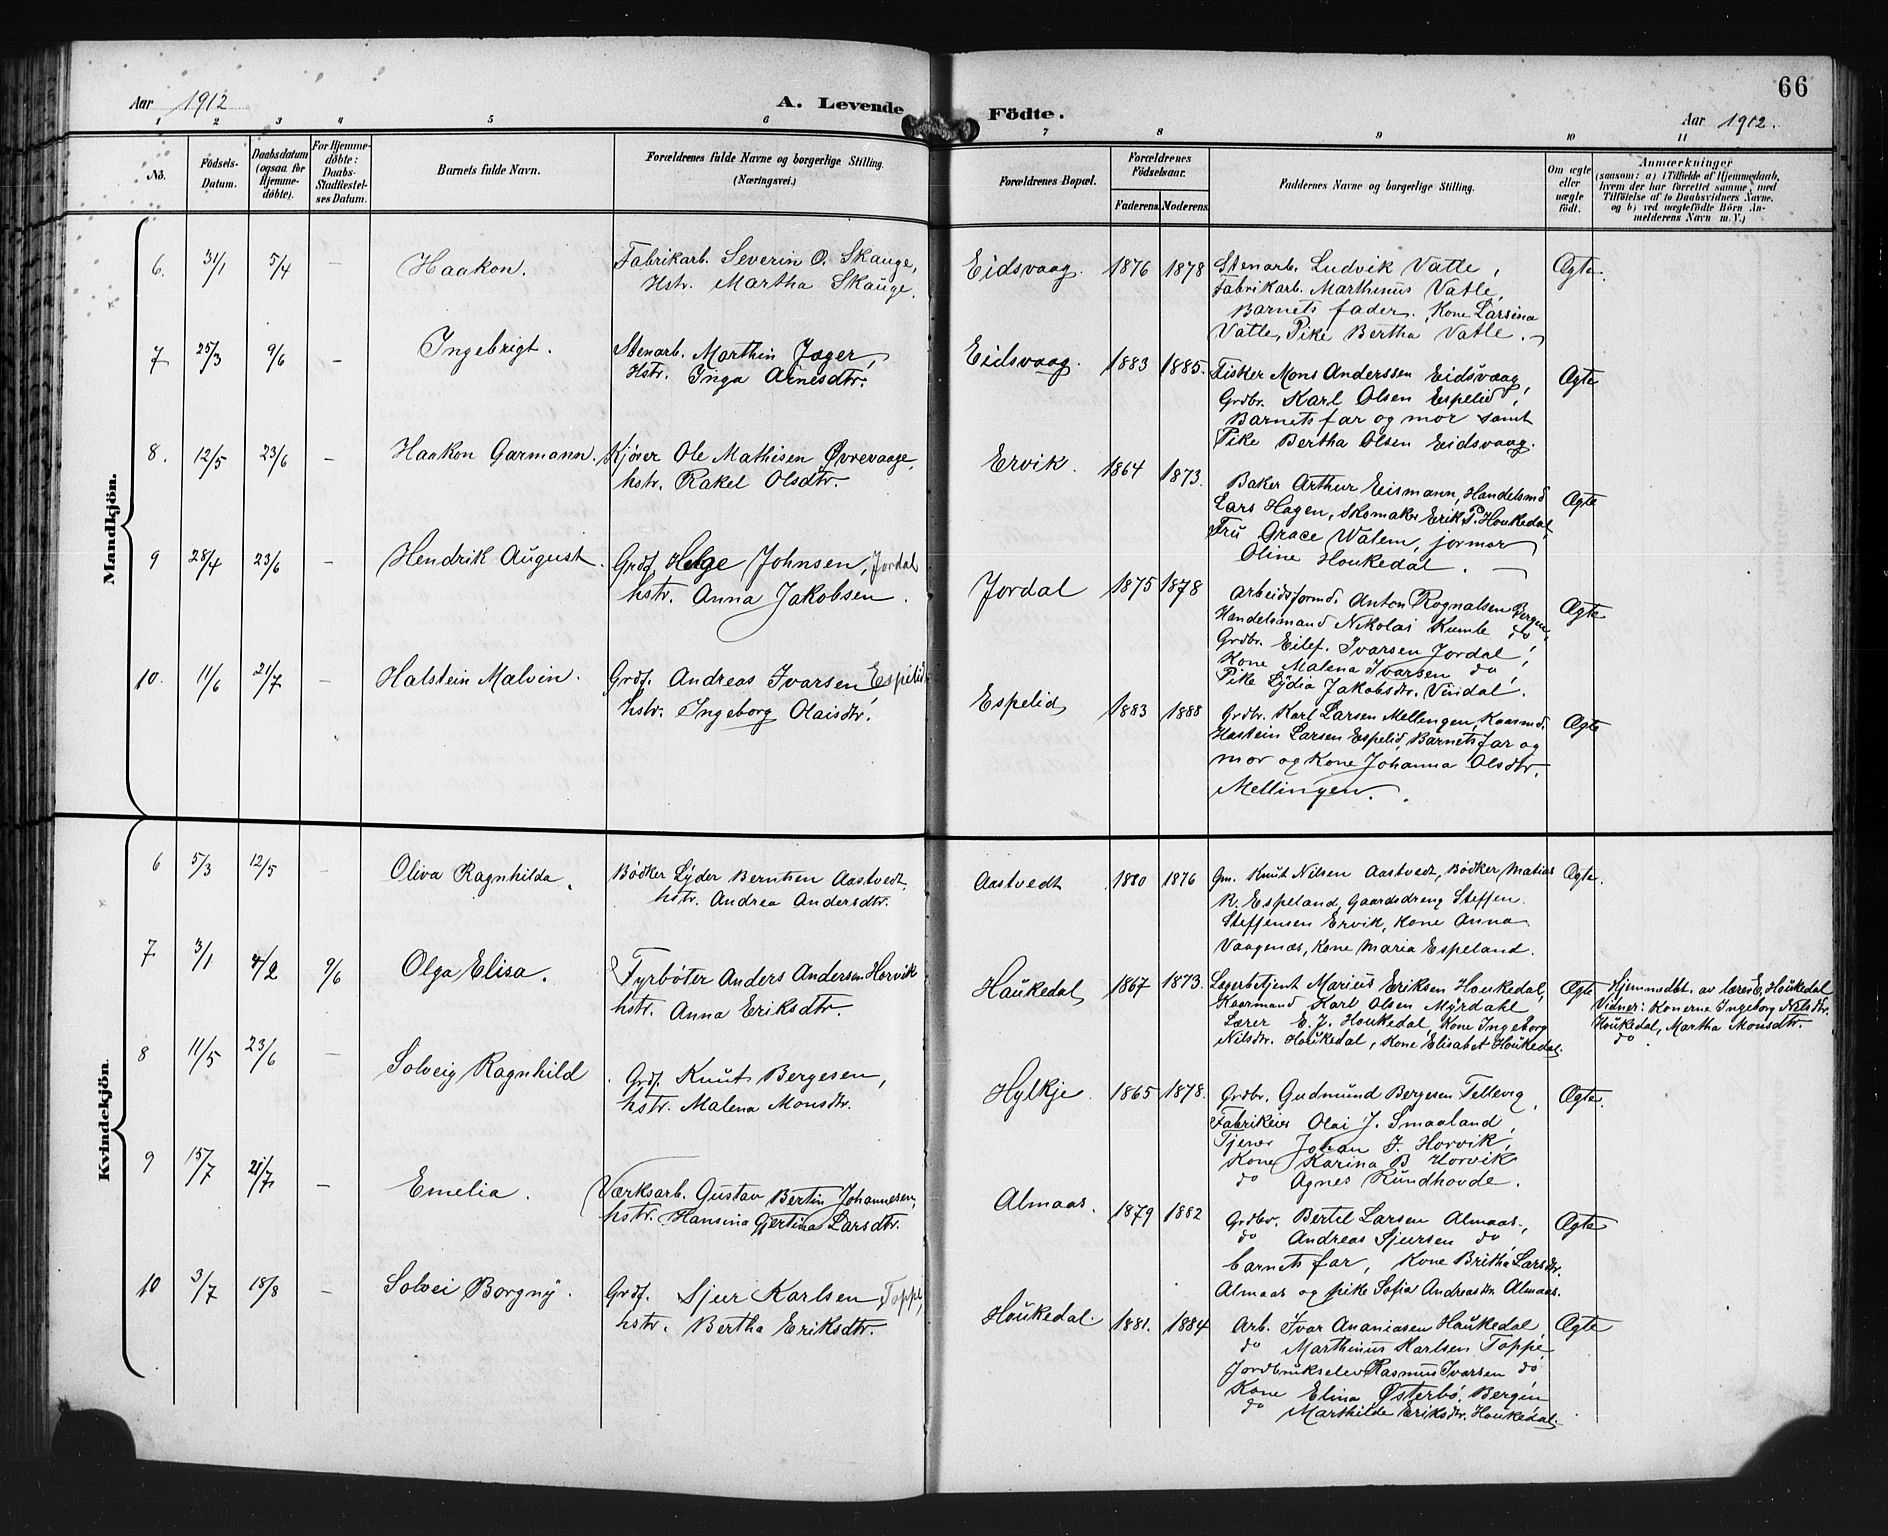 66
Aar 1912
A. Levende Födte.
Aar 1912.
1 2 3 4 5 6 7 8 9 10 11
No.
Födsels-Datum.
Daabsdatum (ogsaa for Hjemme-döbte).
For Hjemme-döbte: Daabs-Stadfæstel-ses Datum.
Barnets fulde Navn.
Forældrenes fulde Navne og borgerlige Stilling. (Næringsvei.)
Forældrenes Bopæl.
Forældrenes Födselsaar.
Faderens. Moderens.
Faddernes Navne og borgerlige Stilling.
Om ægte eller uægte födt.
Anmærkninger
(saasom: a) i Tilfælde af Hjemmedaab,
hvem der har forrettet samme, med
Tilföielse af to Daabsvidners Navne.
og b) ved uægtefödte Börn An-
melderens Navn m. V.)
Mandkjön.
6. 31/1 5/4 – Haakon.
Fabrikarb. Severin O. Skauge,
Hstr. Martha Skauge.
Eidsvaag. 1876 1878
Stenarb. Ludvik Vatle,
Fabrikarb. Marthinus Vatle,
Barnets fader. Kone Larsina
Vatle, Pike Bertha Vatle.
Ægte.
7 25/3 9/6 – Ingebrigt.
Stenarb. Marthin Jæger,
Hstr. Inga Arnesdtr.
Eidsvaag. 1883 1885.
Fisker Mons Anderssen Eidsvaag,
Grdbr. Karl Olsen Espelid,
Barnets far og mor samt
Pike Bertha Olsen Eidsvaag.
Ægte
8. 12/5 23/6 – Haakon Garmann.
Kjører Ole Mathisen Øvrevaage,
hstr. Rakel Olsdtr.
Ervik. 1864 1873.
Baker Arthur Eismann, Handelsmd
Lars Hagen, Skomaker Erik P. Houkedal,
Fru Grace Walem, jormor
Oline Houkedal.
Ægte
9 28/4 23/6 – Hendrik August.
Grdf. Helge Johnsen, Jordal
hstr. Anna Jakobsen.
Jordal 1875 1878
Arbeidsformd. Anton Rognalsen Bergen,
Handelsmand Nikolai Kumle do
Grdbr. Eilef. Ivarsen Jordal,
Kone Malena Ivarsen do,
Pike Lydia Jakobsdtr. Vindal.
Ægte
10. 11/6 21/7 – Halstein Malvin.
Grdf. Andreas Ivarsen Espelid
hstr. Ingeborg Olaisdtr.
Espelid 1883 1888
Grdbr. Karl Larsen Mellingen, Kaarmd.
Hastein Larsen Espelid, Barnets far og
mor og Kone Johanna Olsdtr.
Mellingen.
Ægte
Kvindekjön.
6 5/3 12/5 – Oliva Ragnhilda.
Bødker Lyder Berntsen Aastvedt,
hstr. Andrea Andersdtr.
Aastvedt 1880 1876
Gm. Knut Nilsen Aastvedt, Bødker Matias
R. Espeland, Gaardsdreng Steffen
Steffensen Ervik, Kone Anna
Vaagenæs, Kone Maria Espeland.
Ægte.
7 3/1 4/2 9/6 Olga Elisa.
Fyrbøter Anders Andersen Horvik
hstr. Anna Eriksdtr.
Haukedal 1867 1873.
Lagerbetjent Marius Eriksen Houkedal,
Kaarmand Karl Olsen Myrdahl
Lærer E. J. Houkedal, Kone Ingeborg
Nilsdtr. Houkedal, Kone Elisabet Houkedal.
Ægte
Hjemmedbt. av lærer E. Houkedal
Vidner: Konerne Ingeborg Nilsdtr.
Houkedal, Martha Monsdtr.
do
8 11/5 23/6 – Solveig Ragnhild
Grdf. Knut Bergesen,
hstr. Malena Monsdtr.
Hylkje. 1865 1878.
Grdbr. Gudmund Bergesen Tellevig,
Fabrikeier Olai J. Smaaland,
Tjener Johan J. Horvik,
Kone Karina B Horvik
do Agnes Rundhovde.
Ægte.
9 15/7 21/7 – Emelia.
Værksarb. Gustav Bertin Johannesen,
hstr. Hansina Gjertina Larsdtr.
Almaas. 1879 1882
Grdbr. Bertel Larsen Almaas,
do Andreas Sjursen do,
barnets far, Kone Britha Larsdtr.
Almaas og pike Sofia Andreasdtr Almaas.
Ægte
10 3/7 18/8 – Solvei Borgny.
Grdf. Sjur Karlsen Toppe,
hstr. Bertha Eriksdtr.
Houkedal. 1881. 1884
Arb. Ivar Ananiasen Haukedal,
do Marthinus Karlsen Toppe,
Jordbrukselev Rasmus Ivarsen do
Kone Elina Østerbø, Bergen
do Marthilde Eriksdtr. Houkedal.
Ægte